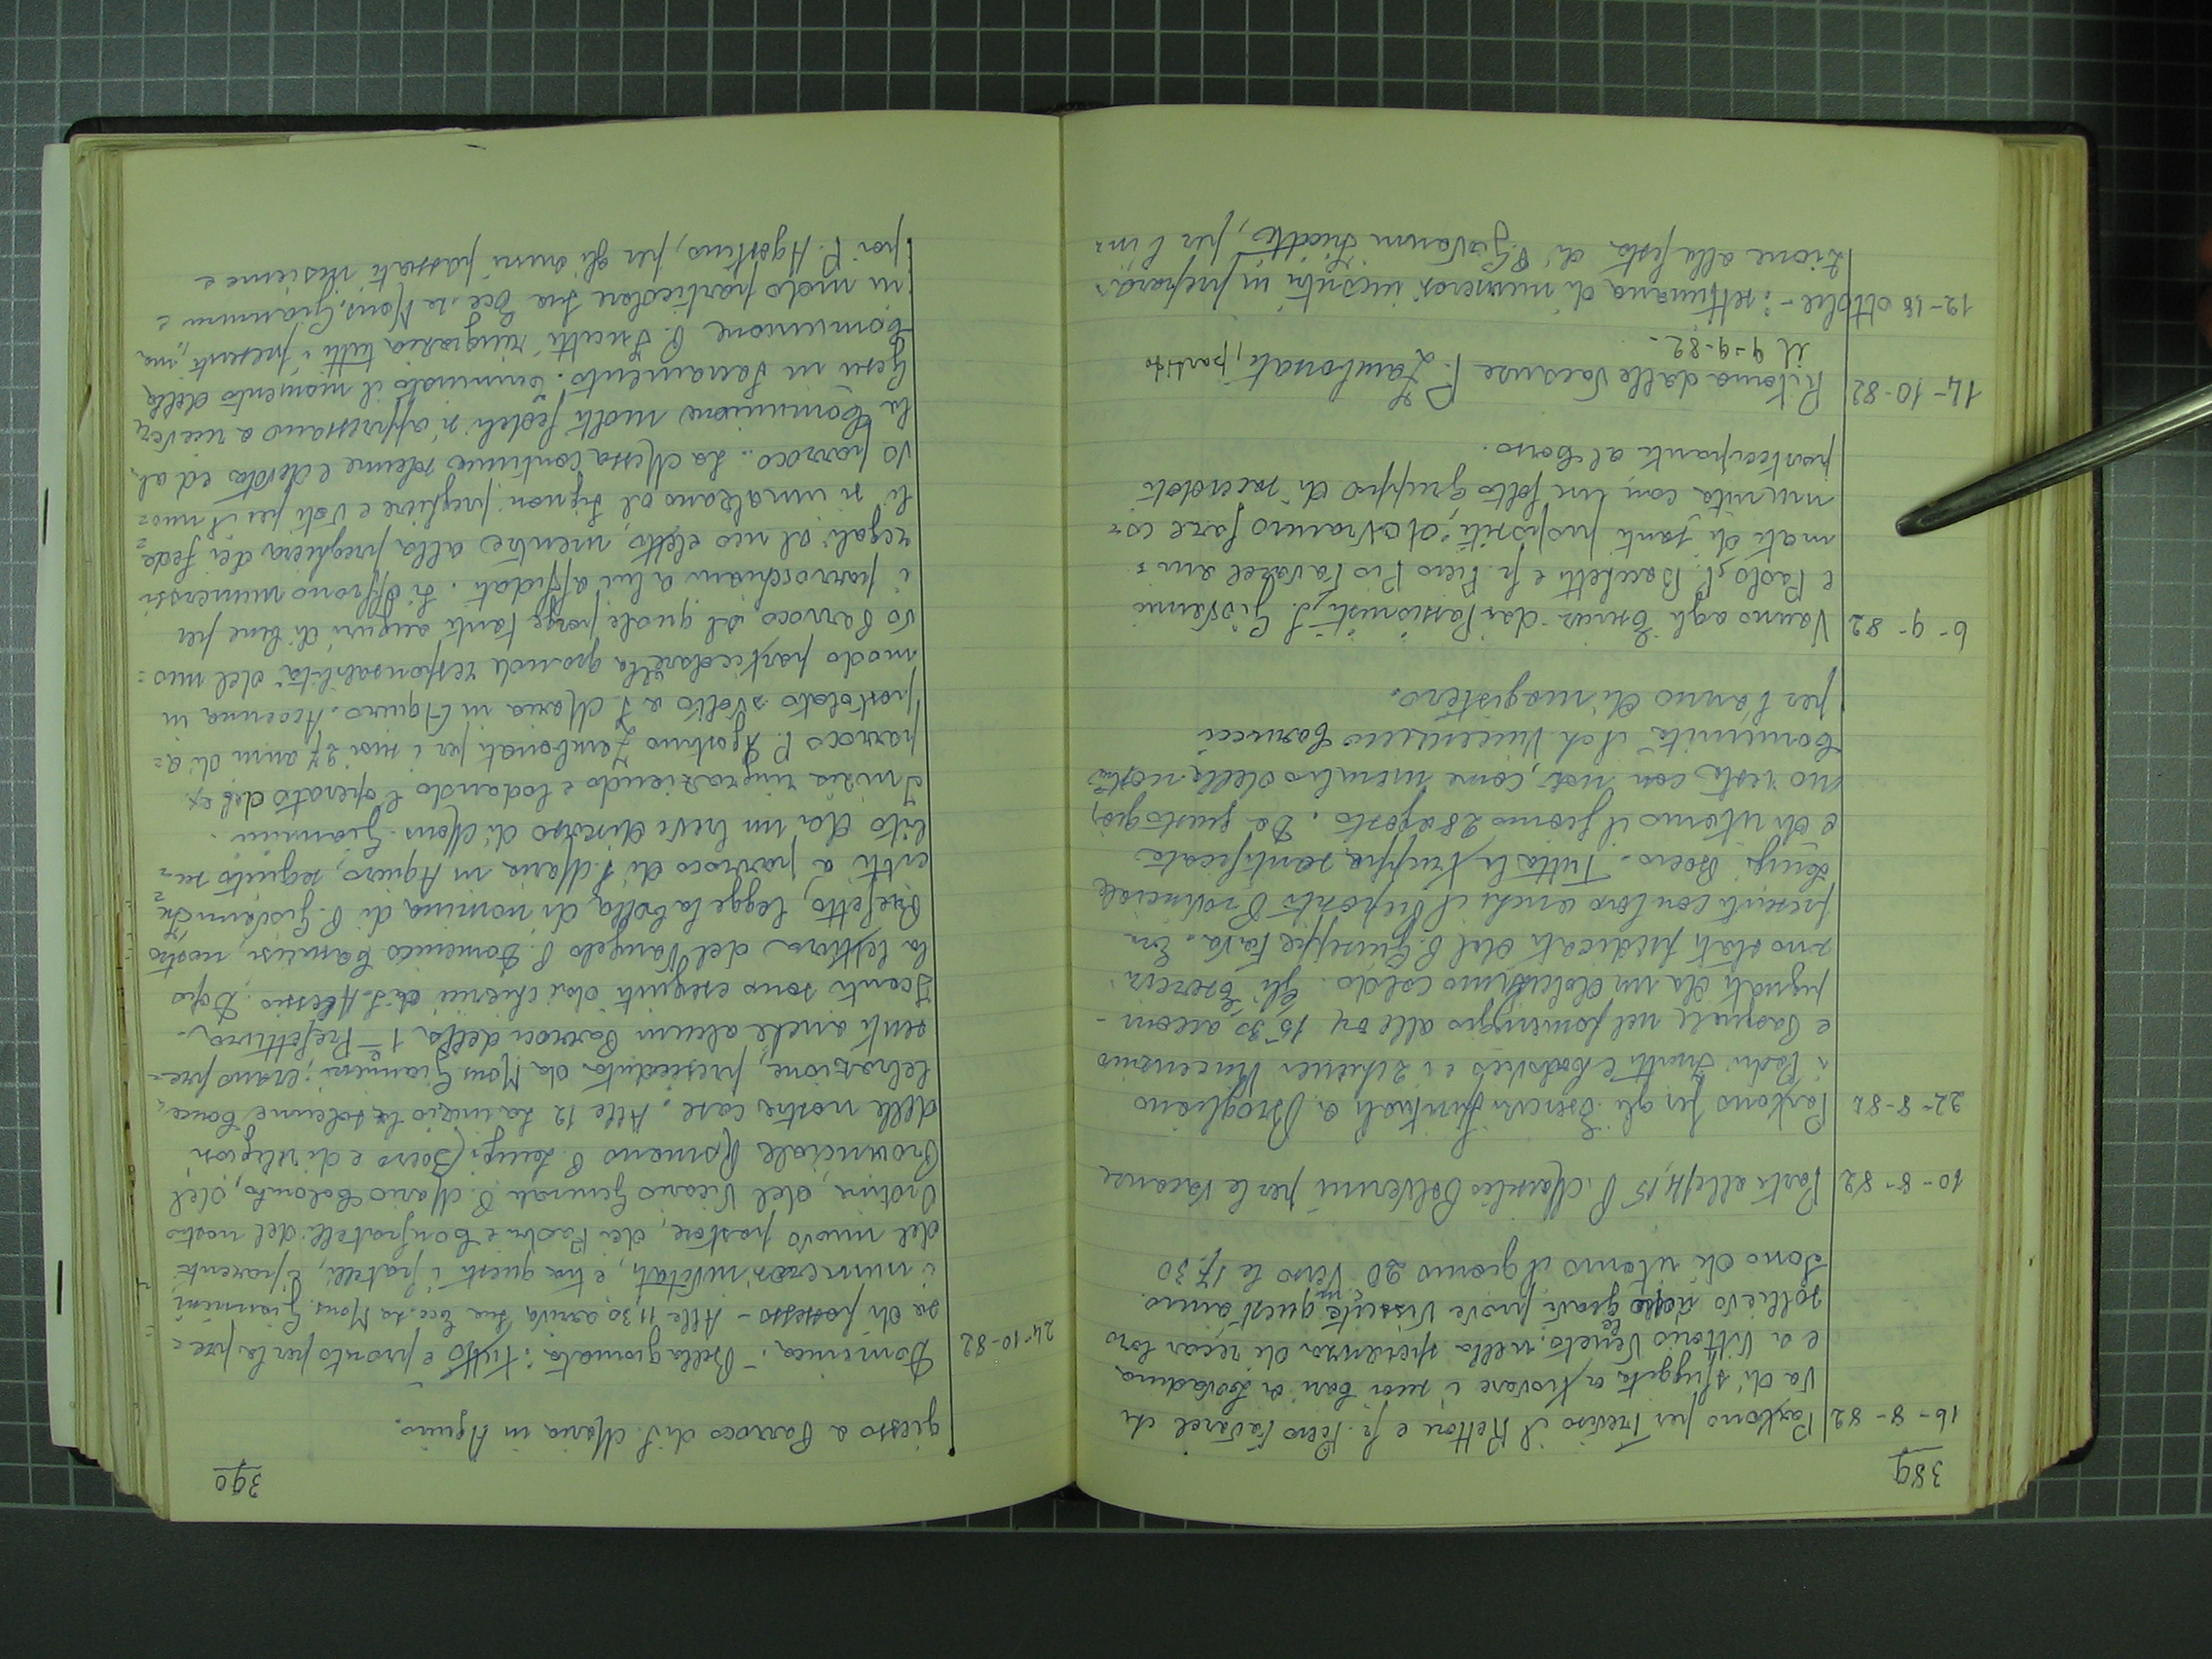 389
16-8-82 Partono per Treviso il Rettore e fr. Piero Favarel che
va di sfuggita a trovare i suoi cari a Lovadina
e a Vittorio Veneto. nella speranza di recar loro
sollievo dopo le gravi prove vissute in quest'anno.
Sono di ritorno il giorno 20 verso le 17,30
10-8-82 Parte alle 14,15 P. per le vacanze
22-8-82 Partono per gli Esercizi Spirituali a
i Padri e Lodovico e i chierici Vincenzino
e Pasquale nel pomeriggio alle ore 15,30 accom-
pagnati da un caldo. Gli Eserci-
zi sono stati predicati dal P. Giuseppe Fava. Era
presente con loro anche il Preposito Provinciale
Luigi Boero. Tutta la truppa santificata
è di ritorno il giorno 28 agosto. Da questo gior-
no resta con noi, come membro della nostra
Comunità il ch Vincenzino
per l'anno di magistero.
6-9-82 Vanno agli Eserciz. dai Passionisti, S. Giovanni
e Paolo, P. e fr. Piero Pio Favarel ani-
mati di santi propositi; dovranno fare co-
munità con un folto gruppo di sacerdoti
partecipanti al Corso.
14-10-82 Ritorna dalle vacanze P. Zambonati, partito
il 9-9-82-
12-18 ottobre-: settimana di numerosi incontri in prepara-
zione alla festa di P. Giovanni per l'in-
390
gresso a Parroco di S. Maria in Aquiro.
24-10-82 Domenica: Bella giornata: tutto è pronto per la pre-
sa di possesso - Alle 11,30 arriva Sua Ecc.za Mons. Giannini
i numerosi invitati, e tra questi i fratelli, i parenti
del nuovo pastore, dei Padri e Confratelli del nostro
Ordine, del Vicario Generale P. Mario Colombo, del
Provinciale Romano P. Luigi Boero e di religiosi
delle nostre case. Alle 12 ha inizio la solenne Conce-
lebrazione, presieduta da Mons Giannini; erano pre-
senti anche alcuni Parroci della 1ª Prefettura.
I canti sono eseguiti dai chierici di S. Alessio. Dopo
la lettura del Vangelo P. Domenico nostro
Prefetto, legge la bolla di nomina di P. Giovanni
a parroco di S. Maria in Aquiro, seguito su-
bito da un breve discorso di Mons. Giannini.
Inizia ringraziando e lodando l'operato dell'ex
parroco P. Agostino Zambonati per i suoi 27 anni di a-
postolato svolto a S. Maria in Aquiro. Accenna in
modo particolare alla grande responsabilità del nuo-
vo Parroco al quale porge tanti auguri di bene per
i parrocchiani a lui affidati. Si offrono numerosi
regali al neo eletto, mentre alla preghiera dei fede-
li si innalzano al Signore preghiere e voti per il nuo-
vo parroco. La Messa continua solenne e devota ed al-
la Comunione molti fedeli si appressano a ricever
Gesù in Sacramento. Terminato il momento della
Comunione P. ringrazia tutti i presenti, ma
in modo particolare Sua Ecc.za Mons. Giannini e
poi P. Agostino, per gli anni passati insieme e